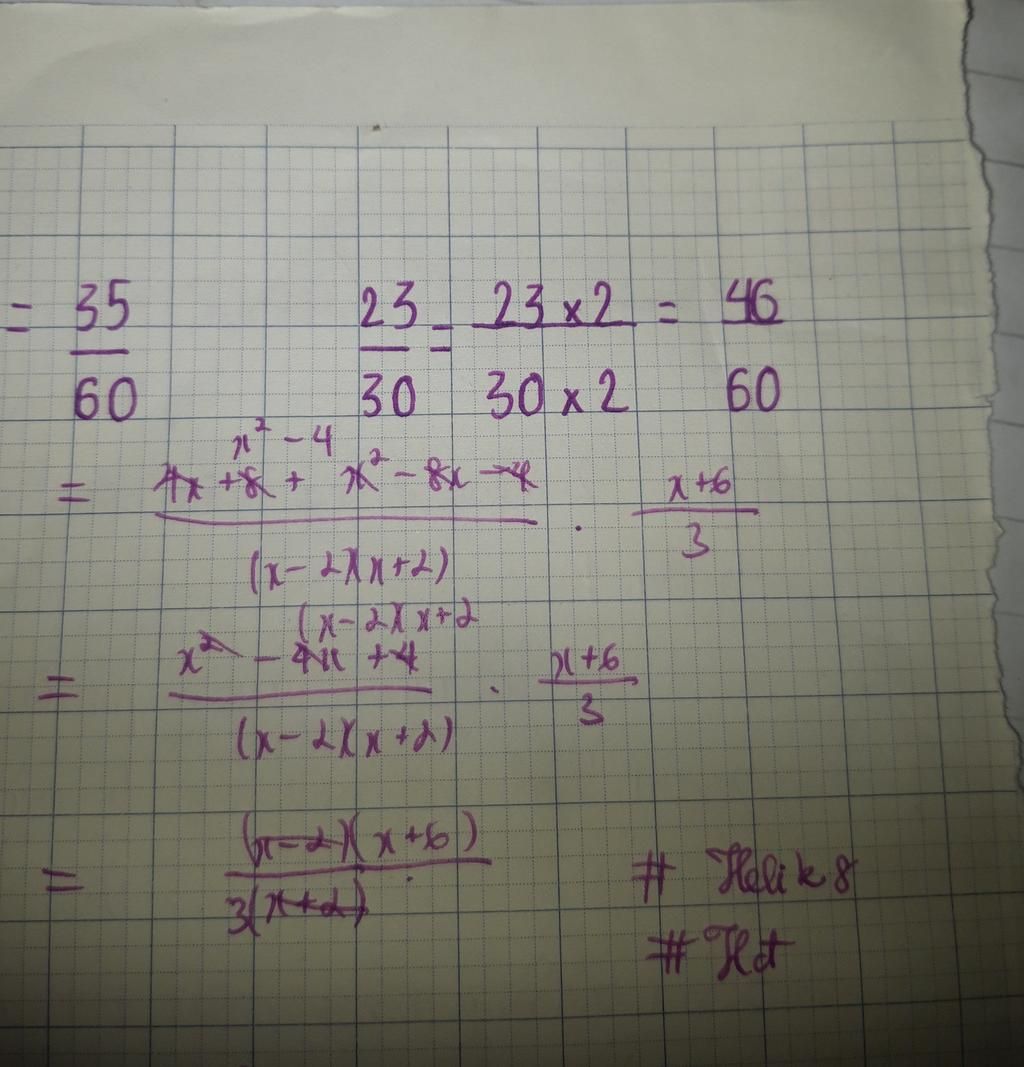 = 35/60 23/30 = 23 x 2/30 x 2 = 46/60
x² - 4
= 4x + 8 + x² - 8x - 4/(x - 2)(x + 2) . x + 6/3
(x - 2)(x + 2
= x² - 4x + 4/(x - 2)(x + 2) . x + 6/3
= (x - 2)(x + 6)/3(x + 2) . # Helik 8
# Hd